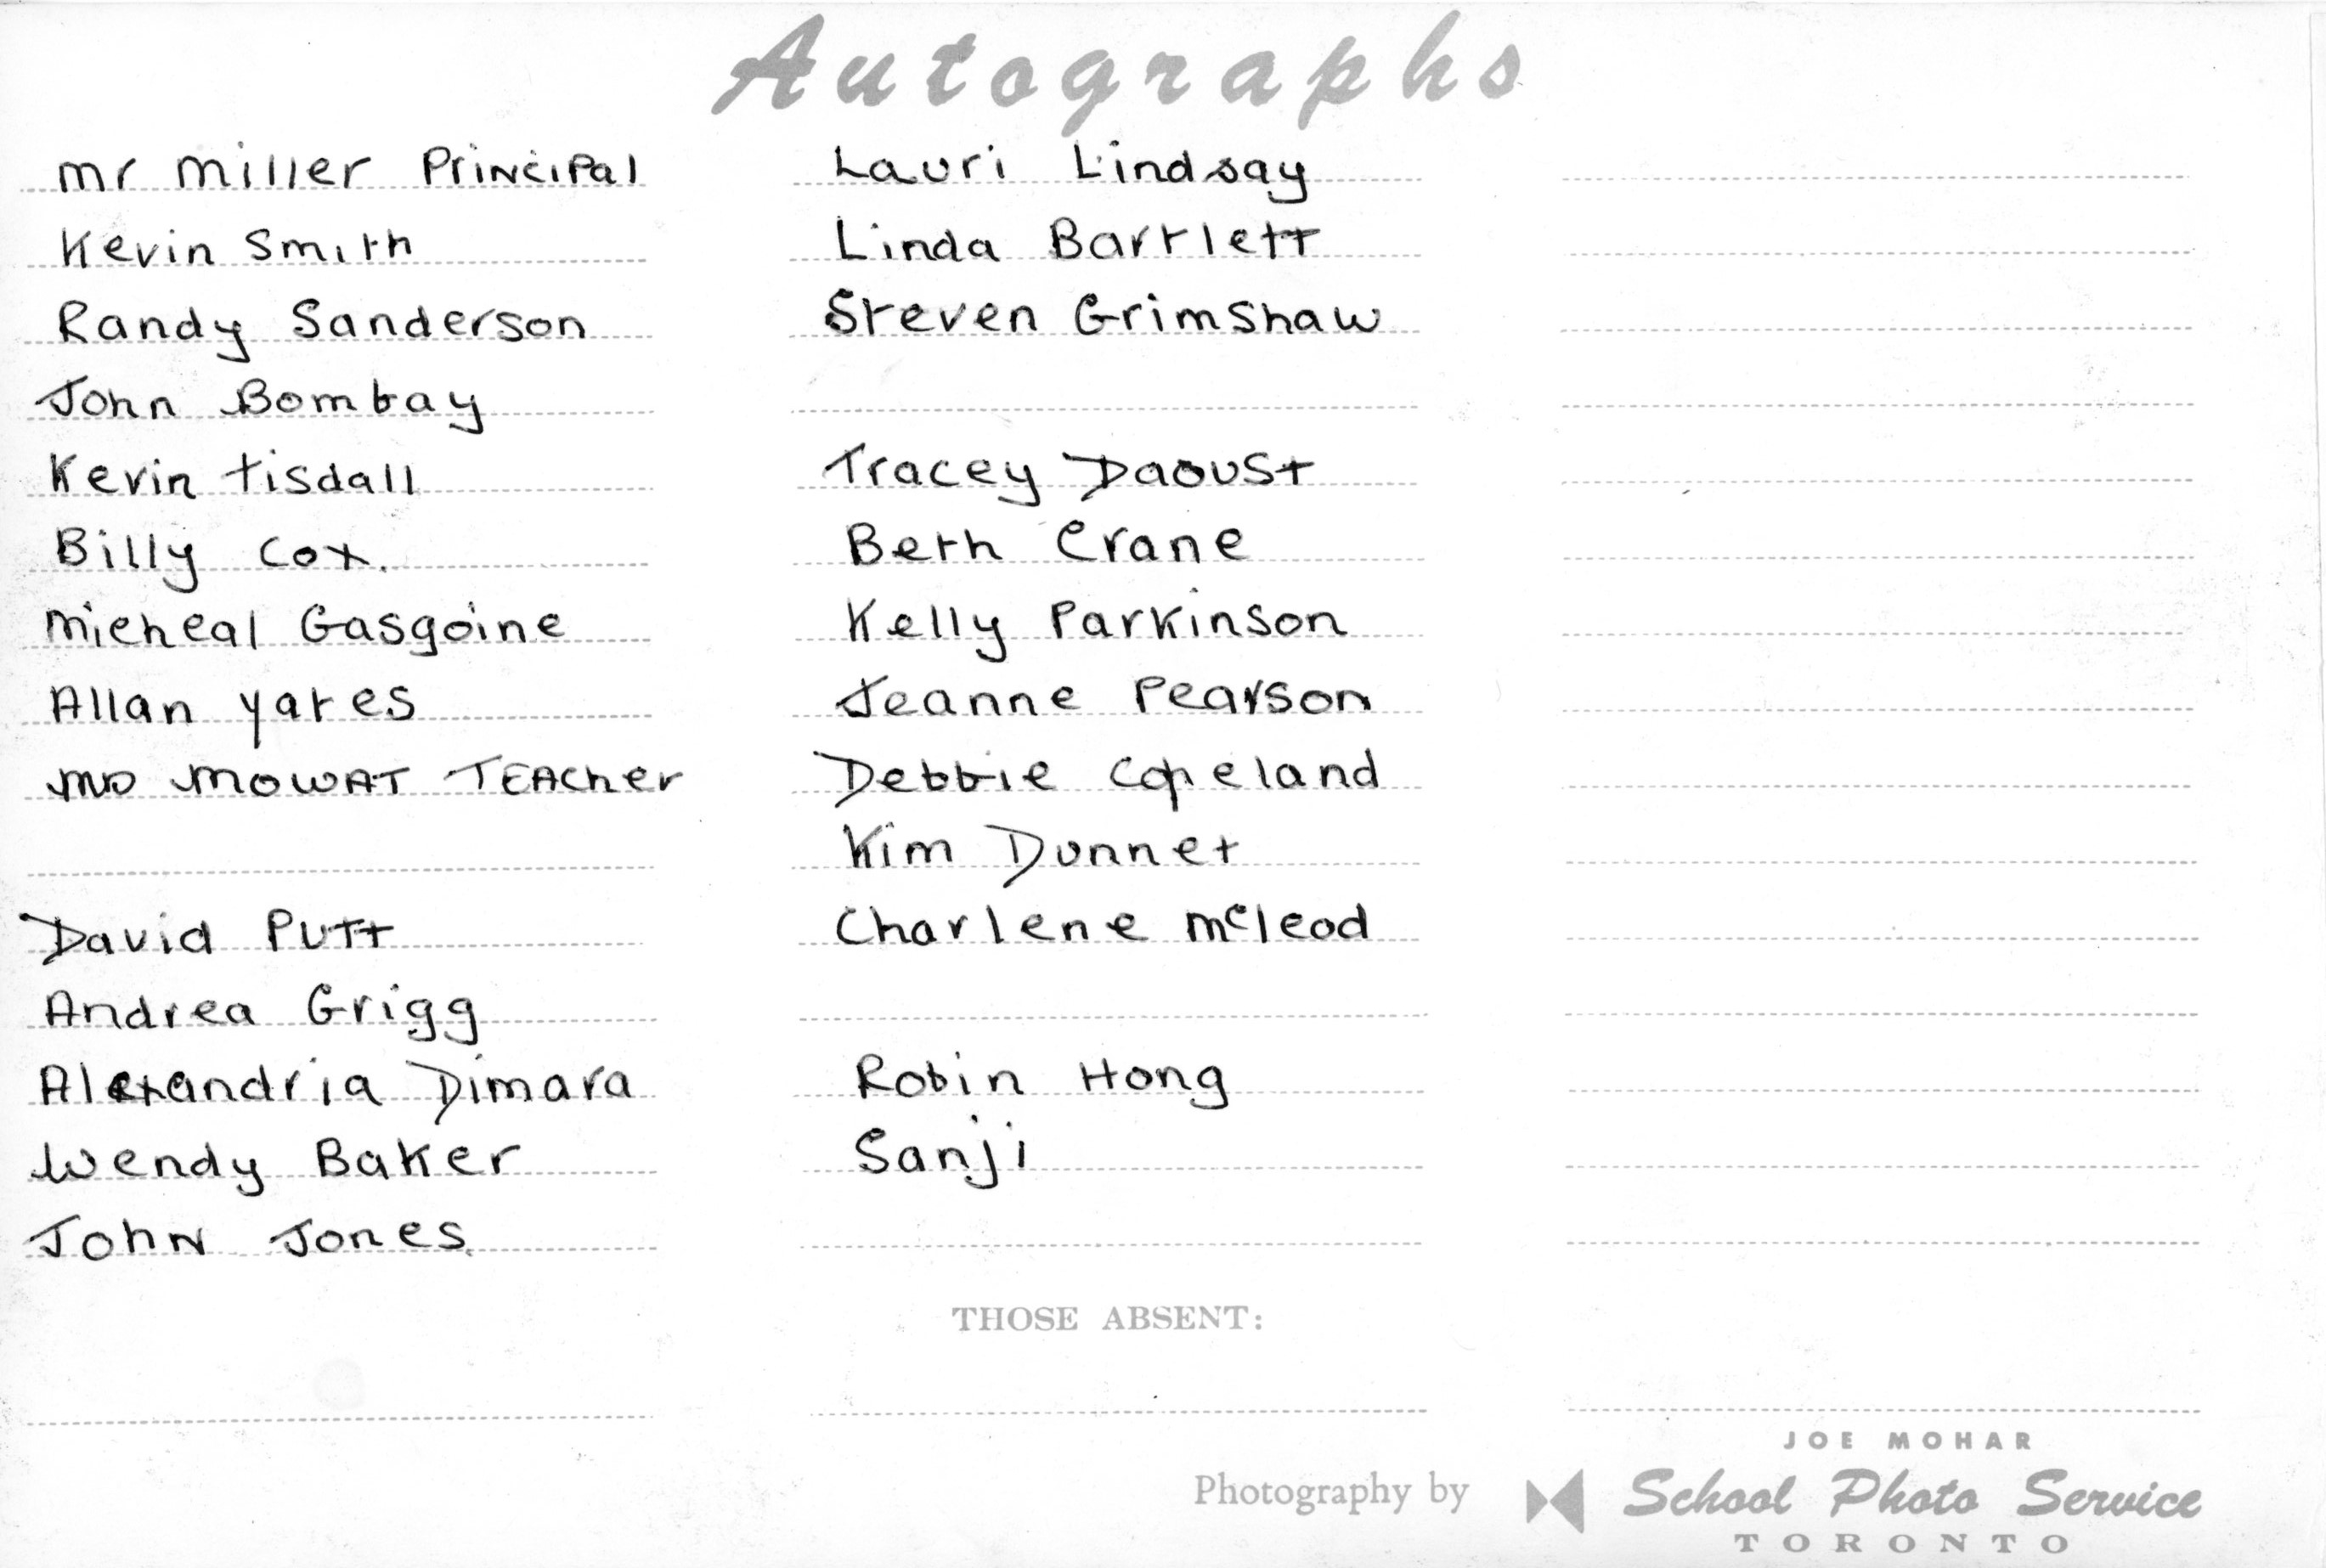 Autographs
mr miller Principal
Kevin Smith
Randy Sanderson
John Bombay
Kevin tisdall
Billy Cox.
micheal Gasgoine
Allan yates
MOWAT TEACher
David Putt
Andrea Grigg
Alexandria Dimara
Wendy Baker
John Jones
Lauri Lindsay
Linda Bartlett
Steven Grimshaw
Tracey Daoust
Beth Crane
Kelly Parkinson
Jeanne Pearson
Debbie Copeland
Kim Dunnet
Charlene mcleod
Robin Hong
Sanji
THOSE ABSENT:
Photography by
JOE MOHAR
School Photo Service
TORONTO